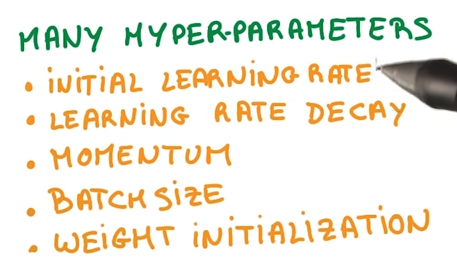 MANY HYPER-PARAMETERS
• INITIAL LEARNING RATE
• LEARNING RATE DECAY
• MOMENTUM
• BATCH SIZE
• WEIGHT INITIALIZATION